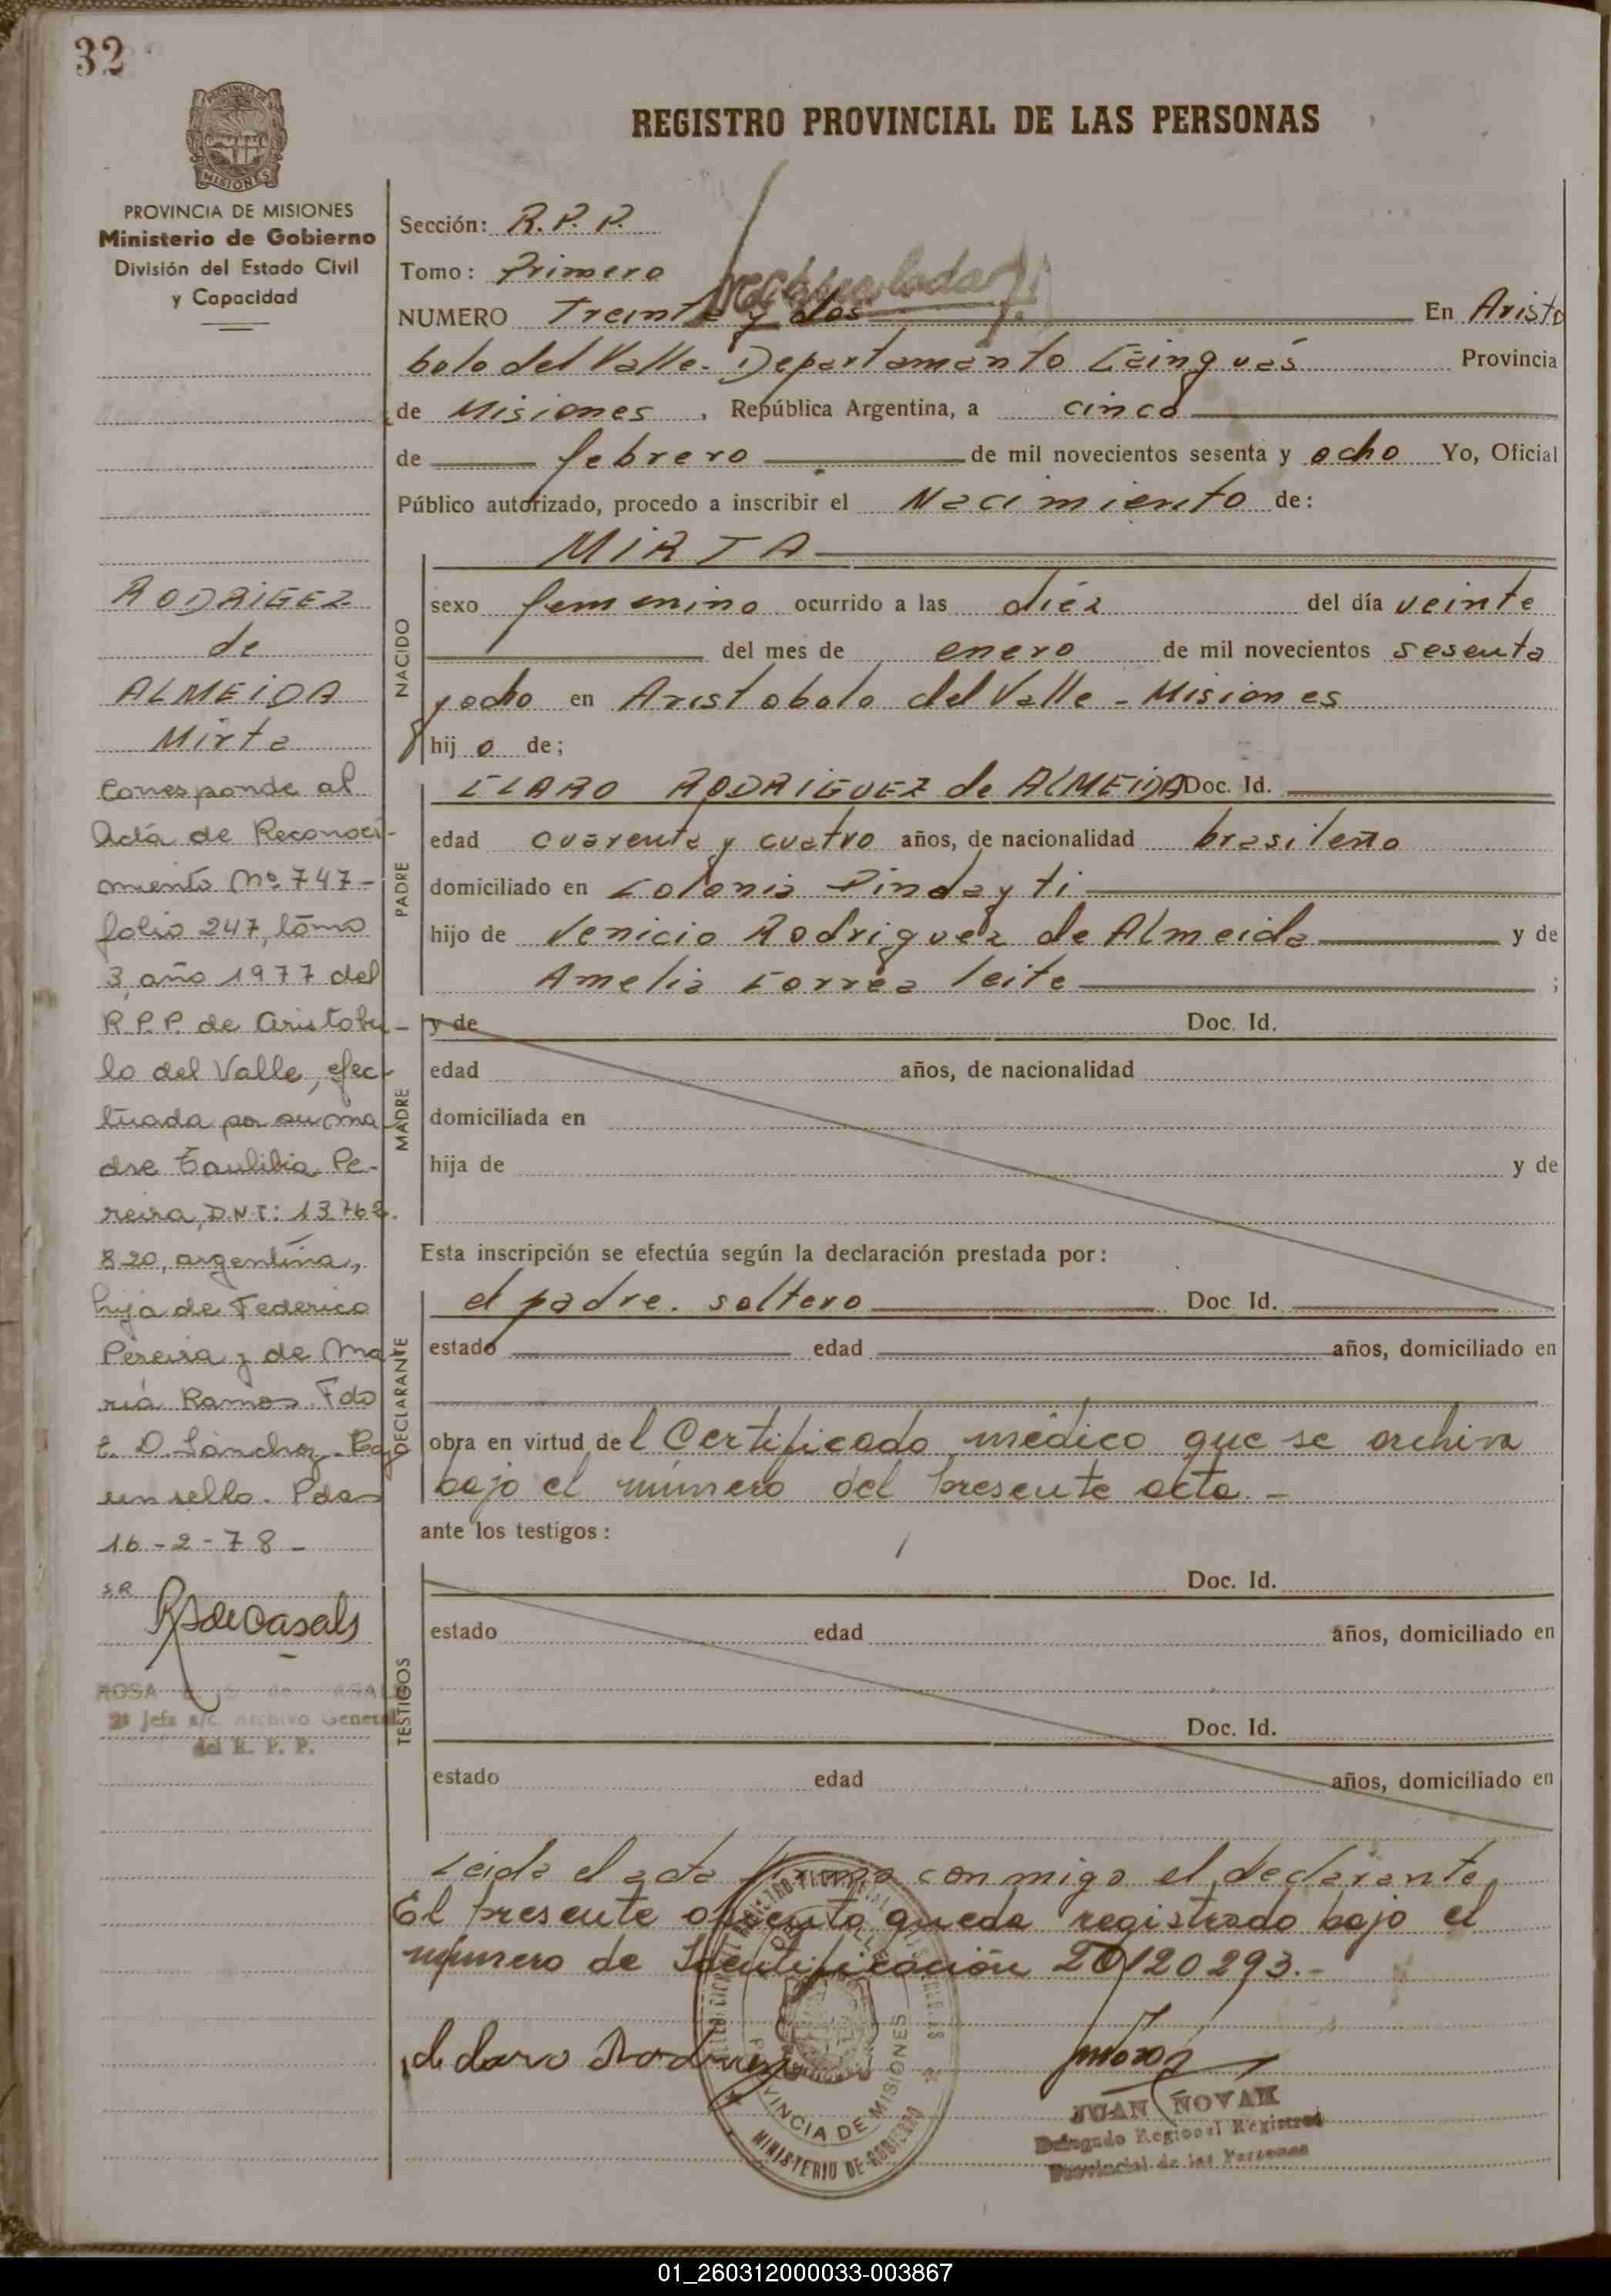 32
REGISTRO PROVINCIAL DE LAS PERSONAS
PROVINCIA DE MISIONES
Ministerio de Gobierno
División del Estado Civil
y Capacidad
RODRIGEZ
de
ALMEIDA
Mirta
Corresponde al
Acta de Reconoci-
miento Nº 747-
folio 247, tomo
3, año 1977 del
R.P.P. de Aristobu-
lo del Valle, efec-
tuada por su ma
dre Eaulibia Pe-
reira, D.N.I: 13.762.
820, argentina,
hija de Federico
Pereira y de Ma
ria Ramos. Fdo
E. D. Sánchez. Hay
un sello. Pdas
16-2-78-
S.R.
RAdeCasals
ROSA
2ª Jefa a/c. Archivo General
del R. P. P.
Sección: R.P.P.
Tomo: Primero
NUMERO Treinta y dos En Aristo
bolo del Valle. Departamento Cainguás Provincia
de Misiones, República Argentina, a cinco
de febrero de mil novecientos sesenta y ocho Yo, Oficial
Público autorizado, procedo a inscribir el Nacimiento de:
NACIDO
MIRTA
sexo femenino ocurrido a las diéz del día veinte
del mes de enero de mil novecientos sesenta
y ocho en Aristobolo del Valle - Misiones
hij o de;
PADRE
CLARO RODRIGUEZ de ALMEIDA Doc. Id.
edad cuarenta y cuatro años, de nacionalidad brasileño
domiciliado en Colonia Pindayti
hijo de Venicio Rodriguez de Almeida y de
Amelia Correa leite ;
MADRE
y de Doc. Id.
edad años, de nacionalidad
domiciliada en
hija de y de
Esta inscripción se efectúa según la declaración prestada por:
DECLARANTE
el padre. soltero Doc. Id.
estado edad años, domiciliado en
obra en virtud del Certificado médico que se archiva
bajo el número del presente acta.-
ante los testigos:
TESTIGOS
Doc. Id.
estado edad años, domiciliado en
Doc. Id.
estado edad años, domiciliado en
Leida el acta firma conmigo el declarante,
El presente asiento queda registrado bajo el
número de Identificación 20120293.-
JUAN NOVAK
Delegado Regional Registro
Provincial de las Personas
PROVINCIA DE MISIONES
MINISTERIO DE GOBIERNO
01_260312000033-003867